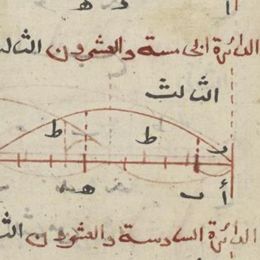 أ د ه
الدائرة الخامسة والعشرون الثالث
الثالث
ط ط ر
ه أ ب
الدائرة السادسة والعشرون الث